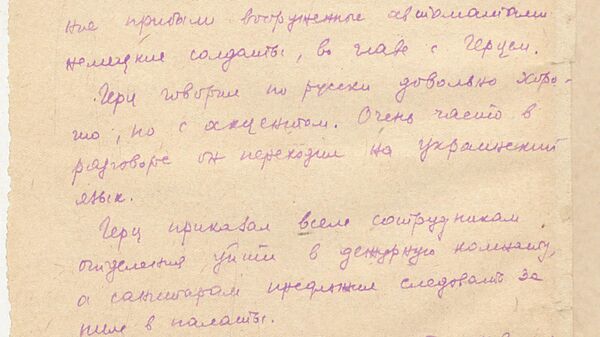 ное прибыли вооруженные автоматами
немецкие солдаты, во главе с Герцем.
Герц говорил по русски довольно хоро-
шо, но с акцентом. Очень часто в
разговоре он переходил на украинский
язык.
Герц приказал всем сотрудникам
отделения уйти в дежурную комнату,
а санитарам предложил следовать за
ним в палаты.